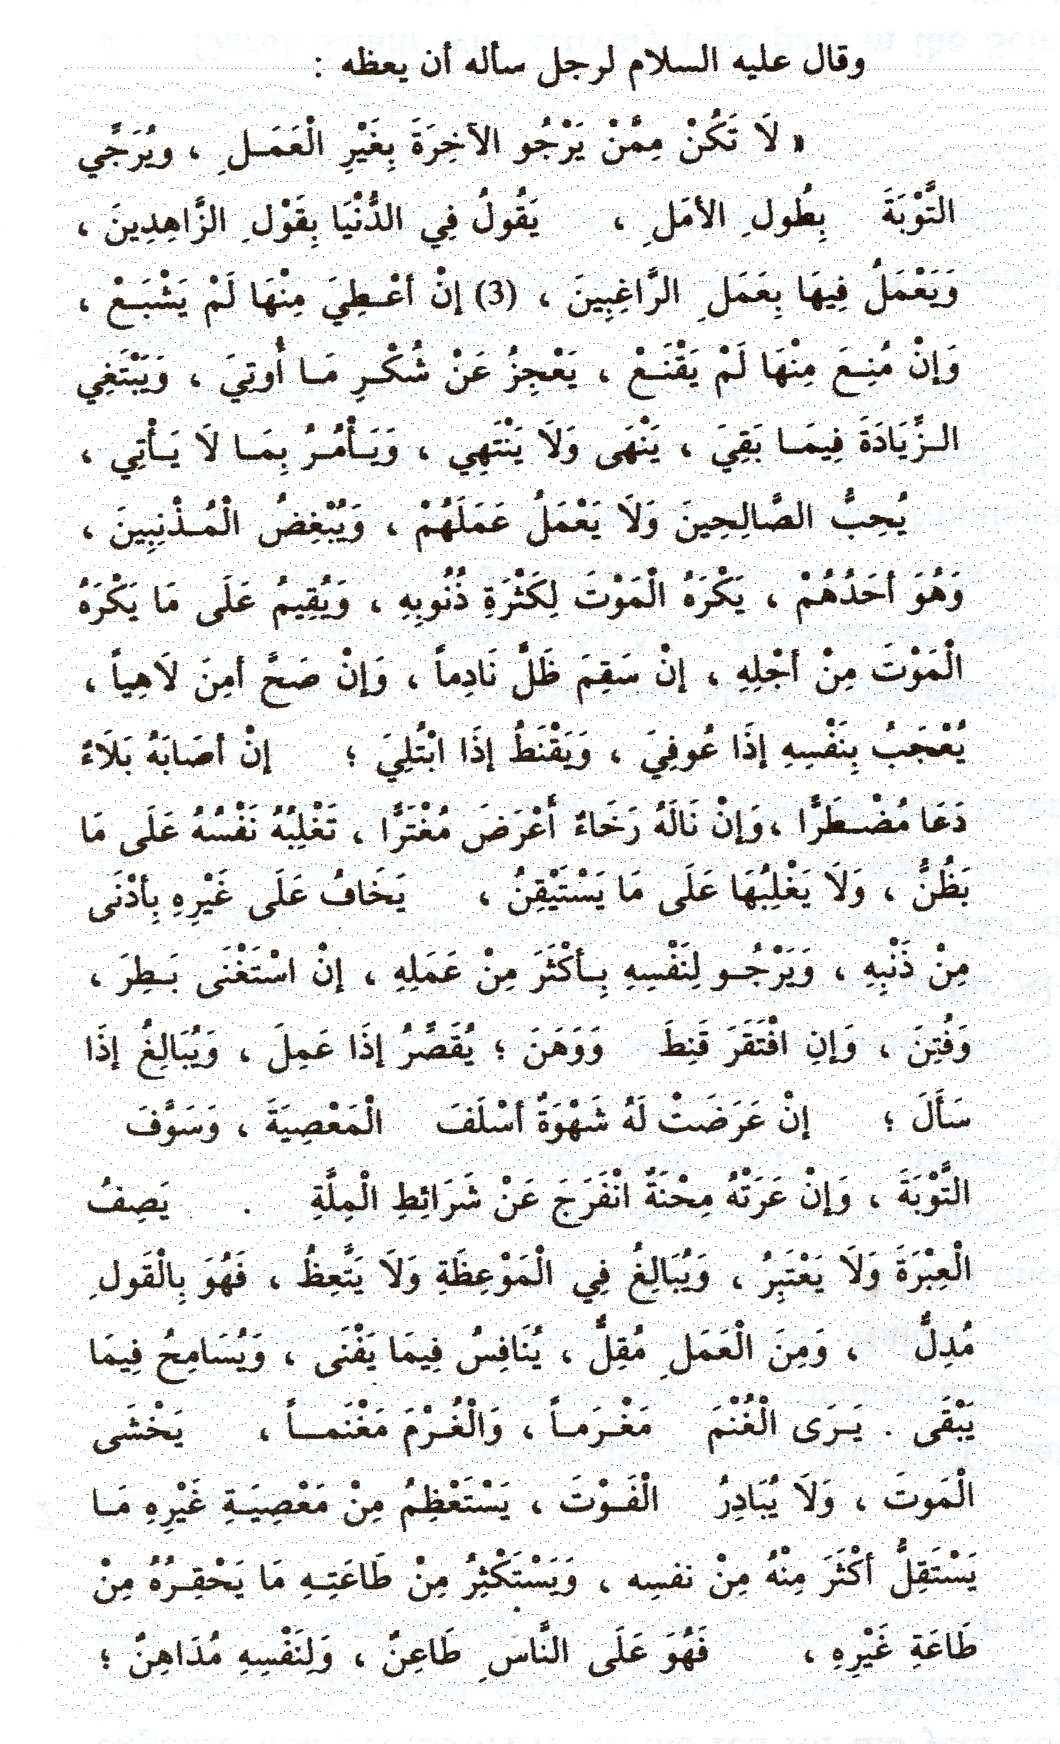 وقال عليه السلام لرجل سأله أن يعظه :
« لَا تَكُنْ مِمَّنْ يَرْجُو الآخِرَةَ بِغَيْرِ الْعَمَلِ ، ويُرَجِّي
التَّوْبَةَ بِطُولِ الأمَلِ ، يَقُولُ فِي الدُّنْيَا بِقَوْلِ الزَّاهِدِينَ ،
وَيَعْمَلُ فِيهَا بِعَمَلِ الرَّاغِبِينَ ، (3) إنْ أعْطِيَ مِنْهَا لَمْ يَشْبَعْ ،
وَإنْ مُنِعَ مِنْهَا لَمْ يَقْنَعْ ، يَعْجِزُ عَنْ شُكْرِ مَا أُوتِيَ ، وَيَبْتَغِي
الزِّيَادَةَ فِيمَا بَقِيَ ، يَنْهَى وَلَا يَنْتَهِي ، وَيَأْمُرُ بِمَا لَا يَأْتِي ،
يُحِبُّ الصَّالِحِينَ وَلَا يَعْمَلُ عَمَلَهُمْ ، وَيُبْغِضُ الْمُذْنِبِينَ ،
وَهُوَ أحَدُهُمْ ، يَكْرَهُ الْمَوْتَ لِكَثْرَةِ ذُنُوبِهِ ، وَيُقِيمُ عَلَى مَا يَكْرَهُ
الْمَوْتَ مِنْ أجْلِهِ ، إنْ سَقِمَ ظَلَّ نَادِماً ، وَإنْ صَحَّ أمِنَ لَاهِياً ،
يُعْجَبُ بِنَفْسِهِ إذَا عُوفِيَ ، وَيَقْنَطُ إذَا ابْتُلِيَ ؛ إنْ أصَابَهُ بَلَاءٌ
دَعَا مُضْطَرًّا ، وَإنْ نَالَهُ رَخَاءٌ أَعْرَضَ مُغْتَرًّا ، تَغْلِبُهُ نَفْسُهُ عَلَى مَا
يَظُنُّ ، وَلَا يَغْلِبُهَا عَلَى مَا يَسْتَيْقِنُ ، يَخَافُ عَلَى غَيْرِهِ بِأدْنَى
مِنْ ذَنْبِهِ ، وَيَرْجُو لِنَفْسِهِ بِأكْثَرَ مِنْ عَمَلِهِ ، إنْ اسْتَغْنَى بَطِرَ ،
وَفُتِنَ ، وَإنِ افْتَقَرَ قَنِطَ وَوَهَنَ ؛ يُقَصِّرُ إذَا عَمِلَ ، وَيُبَالِغُ إذَا
سَأَلَ ؛ إنْ عَرَضَتْ لَهُ شَهْوَةٌ أسْلَفَ الْمَعْصِيَةَ ، وَسَوَّفَ
التَّوْبَةَ ، وَإنْ عَرَتْهُ مِحْنَةٌ انْفَرَجَ عَنْ شَرَائِطِ الْمِلَّةِ . يَصِفُ
الْعِبْرَةَ وَلَا يَعْتَبِرُ ، وَيُبَالِغُ فِي الْمَوْعِظَةِ وَلَا يَتَّعِظُ ، فَهُوَ بِالْقَولِ
مُدِلٌّ ، وَمِنَ الْعَمَلِ مُقِلٌّ ، يُنَافِسُ فِيمَا يَفْنَى ، وَيُسَامِحُ فِيمَا
يَبْقَى . يَرَى الْغُنْمَ مَغْرَماً ، وَالْغُرْمَ مَغْنَماً ، يَخْشَى
الْمَوتَ ، وَلَا يُبَادِرُ الْفَوْتَ ، يَسْتَعْظِمُ مِنْ مَعْصِيَةِ غَيْرِهِ مَا
يَسْتَقِلُّ أكْثَرَ مِنْهُ مِنْ نفسِه ، وَيَسْتَكْثِرُ مِنْ طَاعَتِهِ مَا يَحْقِرُهُ مِنْ
طَاعَةِ غَيْرِهِ ، فَهُوَ عَلَى النَّاسِ طَاعِنٌ ، وَلِنَفْسِهِ مُدَاهِنٌ ؛